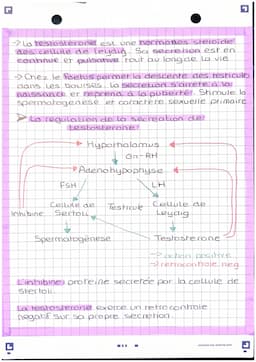 -> La testostérone est une hormones stéroïde
des cellule de leydig. Sa secretion est en
continue et pulsative tout au long de la vie
-> Chez le foetus permet la descente des testicule
dans les bourses. La secretion s'arrete à la
naissance et reprend à la puberté. Stimule la
spermatogenese et caractère sexuelle primaire.
➤ La regulation de la secretion de
testosterone:
Hypothalamus
Gn-RH
Adenohypophyse
FSH LH
Cellule de Testicule Cellule de
Inhibine Sertoli Leydig
Spermatogènese Testosterone
-> action positive
-> retrocontrole neg
L'inhibine: proteine secretée par la cellule de
Stertoli.
La testosterone exerce un retrocontrole
negatif sur sa propre secretion.